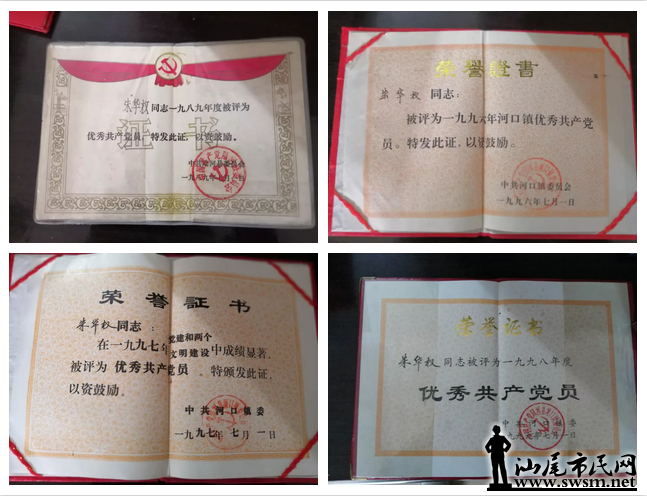 朱华权同志一九八九年度被评为
优秀共产党员。特发此证,以资鼓励。
证书
中共陆河县委员会
荣誉證書
朱华权同志:
被评为一九九六年河口镇优秀共产党
员。特发此证,以资鼓励。
中共河口镇委员会
一九九六年七月一日
荣誉証书
朱华权同志:
在一九九七年党建和两个文明建设中成绩显著,
被评为优秀共产党员。特颁发此证,
以资鼓励。
中共河口镇委
一九九七年七月一日
荣誉证书
朱华权同志被评为一九九八年度
优秀共产党员
汕尾市民网
www.swsm.net